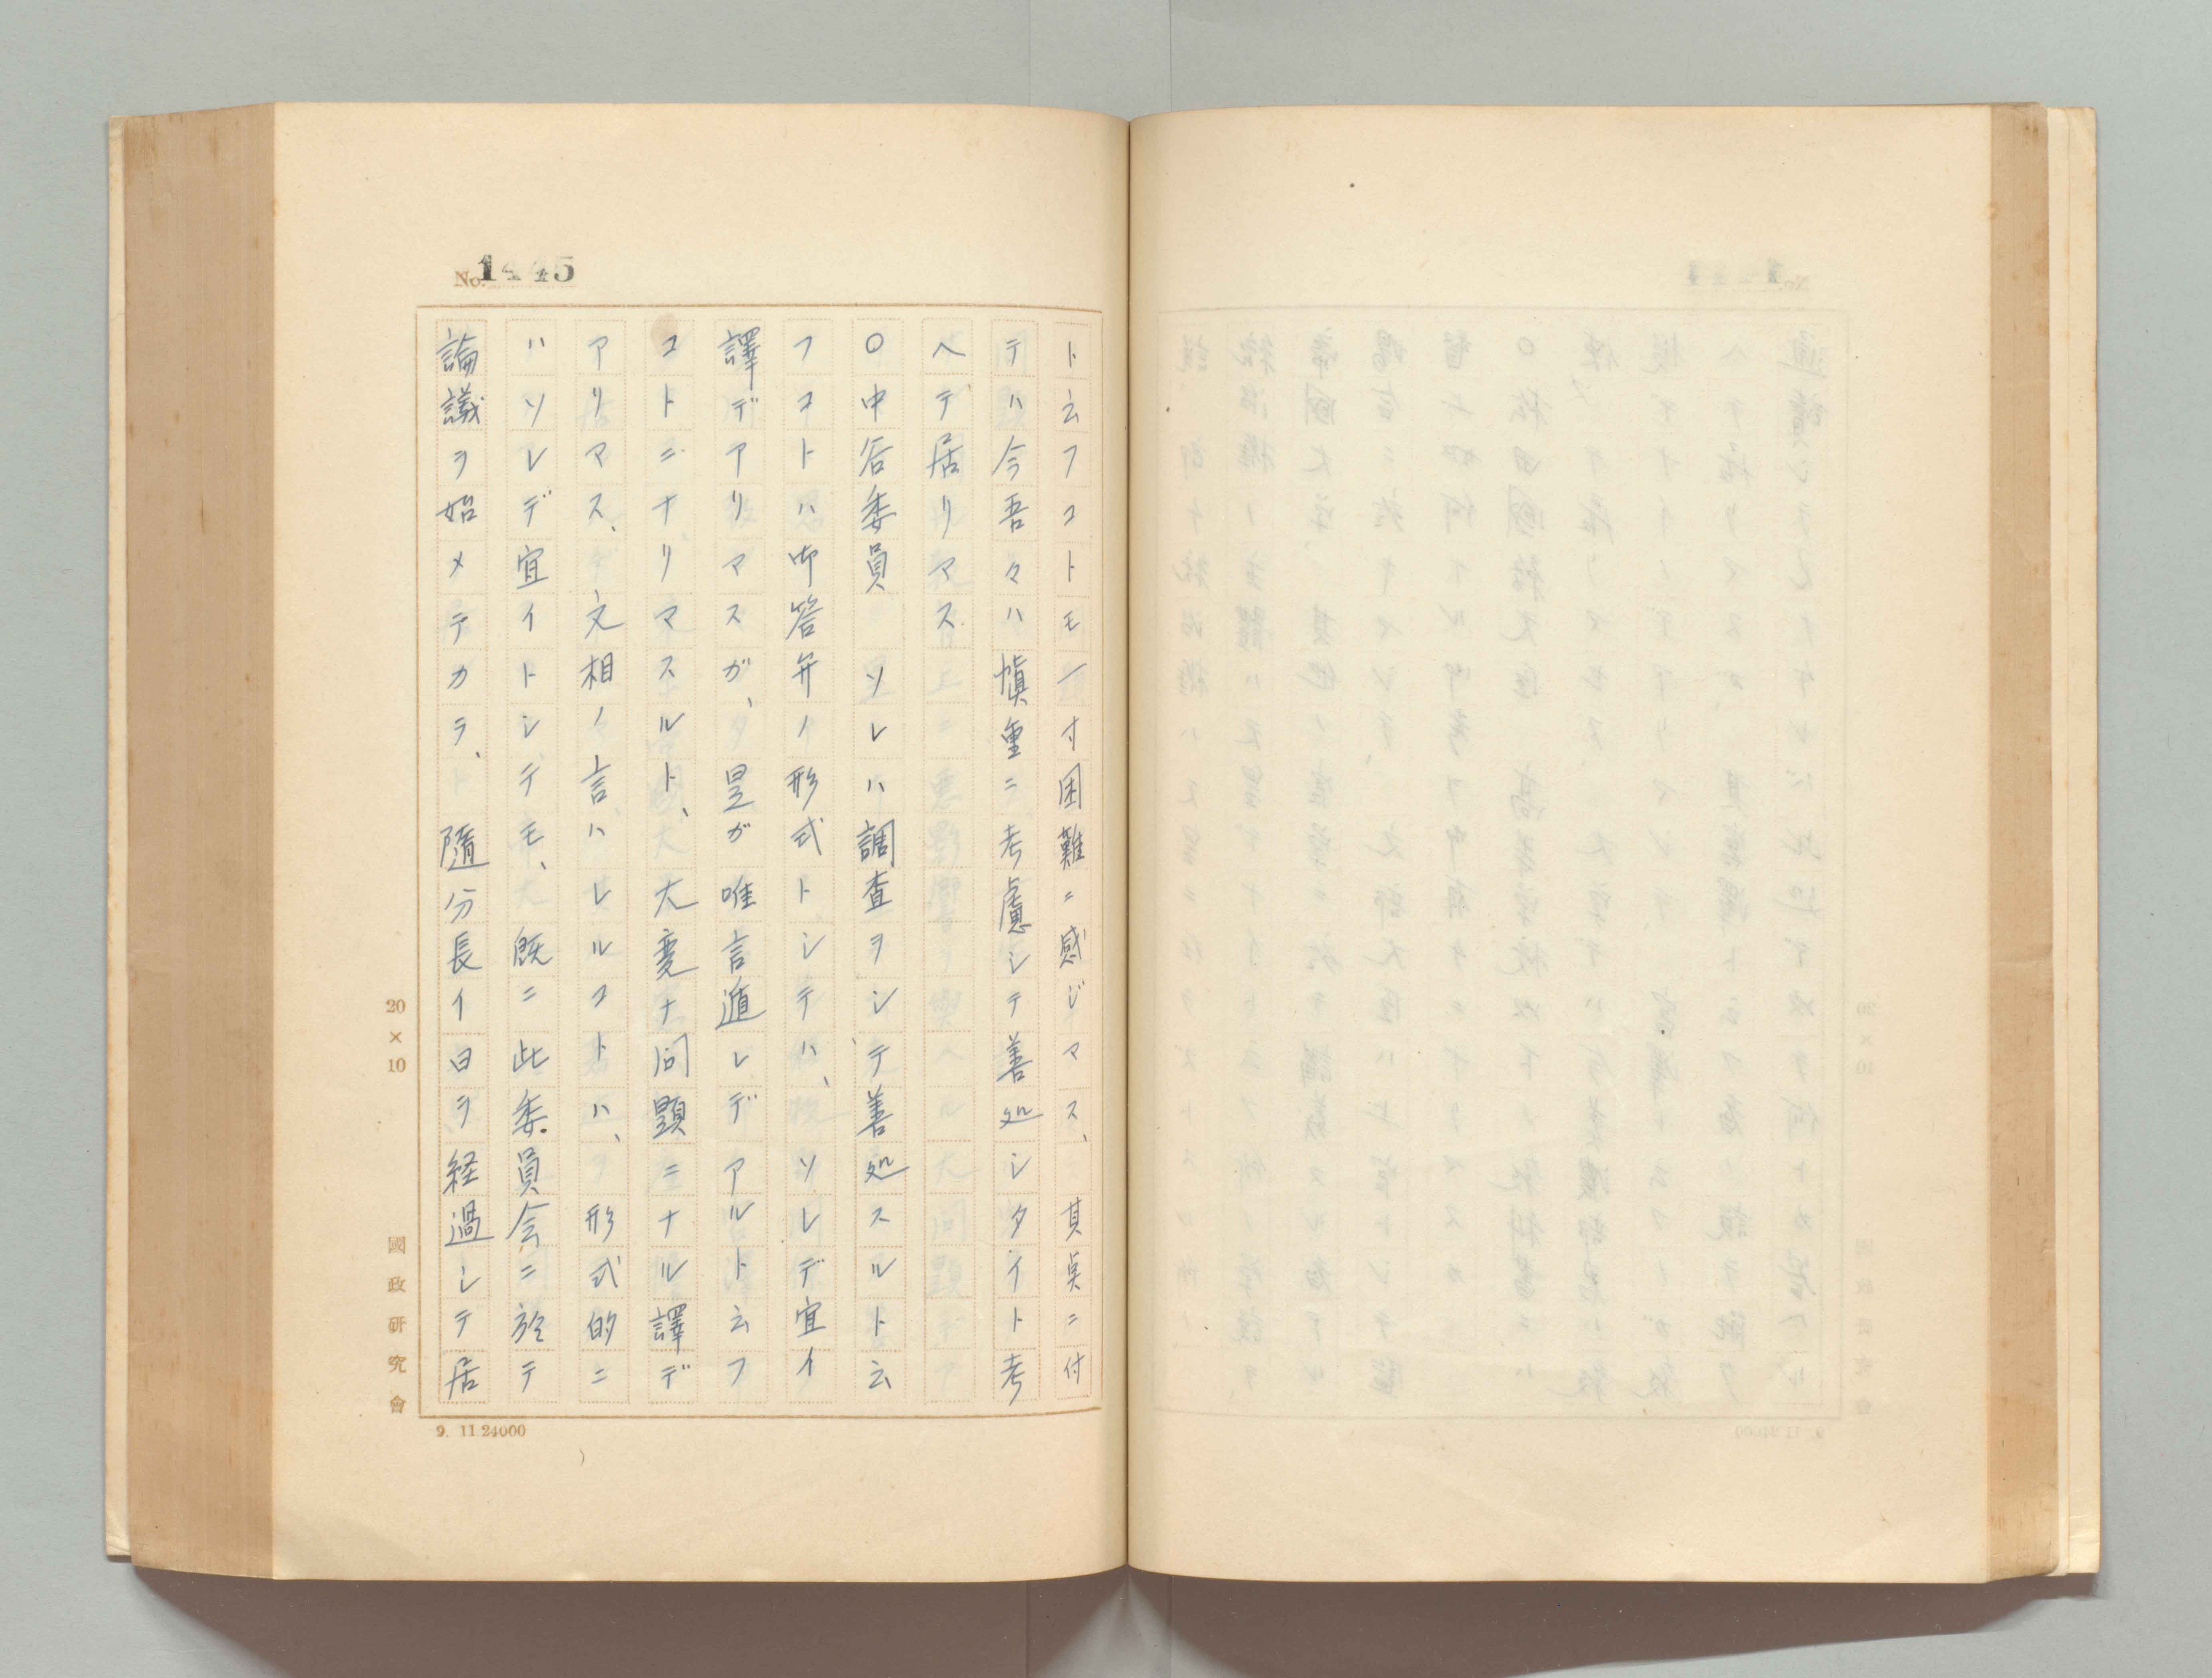 No. 1445
ト云フコトモ一寸困難ニ感ジマス、其奌ニ付
テハ今吾々ハ慎重ニ考慮シテ善処シタイト考
ヘテ居リマス
○中谷委員　ソレハ調査ヲシテ善処スルト云
フコトハ御答弁ノ形式トシテハ、ソレデ宜イ
譯デアリマスガ、是ガ唯言遁レデアルト云フ
コトニナリマスルト、大変ナ問題ニナル譯デ
アリマス、文相ノ言ハレルコトハ、形式的ニ
ハソレデ宜イトシテモ、既ニ此委員会ニ於テ
論議ヲ始メテカラ、随分長イ日ヲ経過シテ居
20×10
國政研究會
9. 11 24000